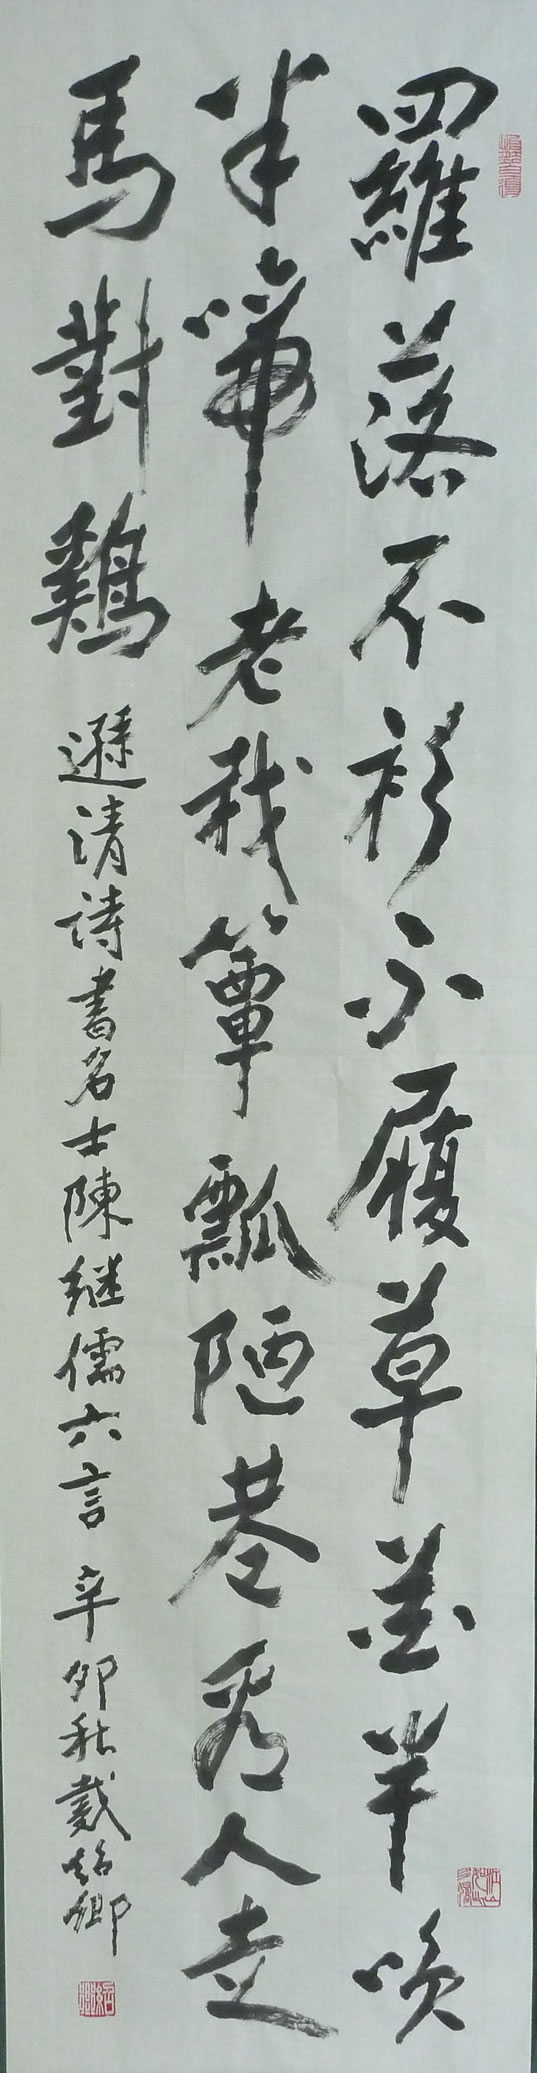 羅落不衫不履草堂半喚
半啼老我簞瓢陋巷看人走
馬對鷄 遜清詩書名士陳継儒六言 辛卯秋戴卿